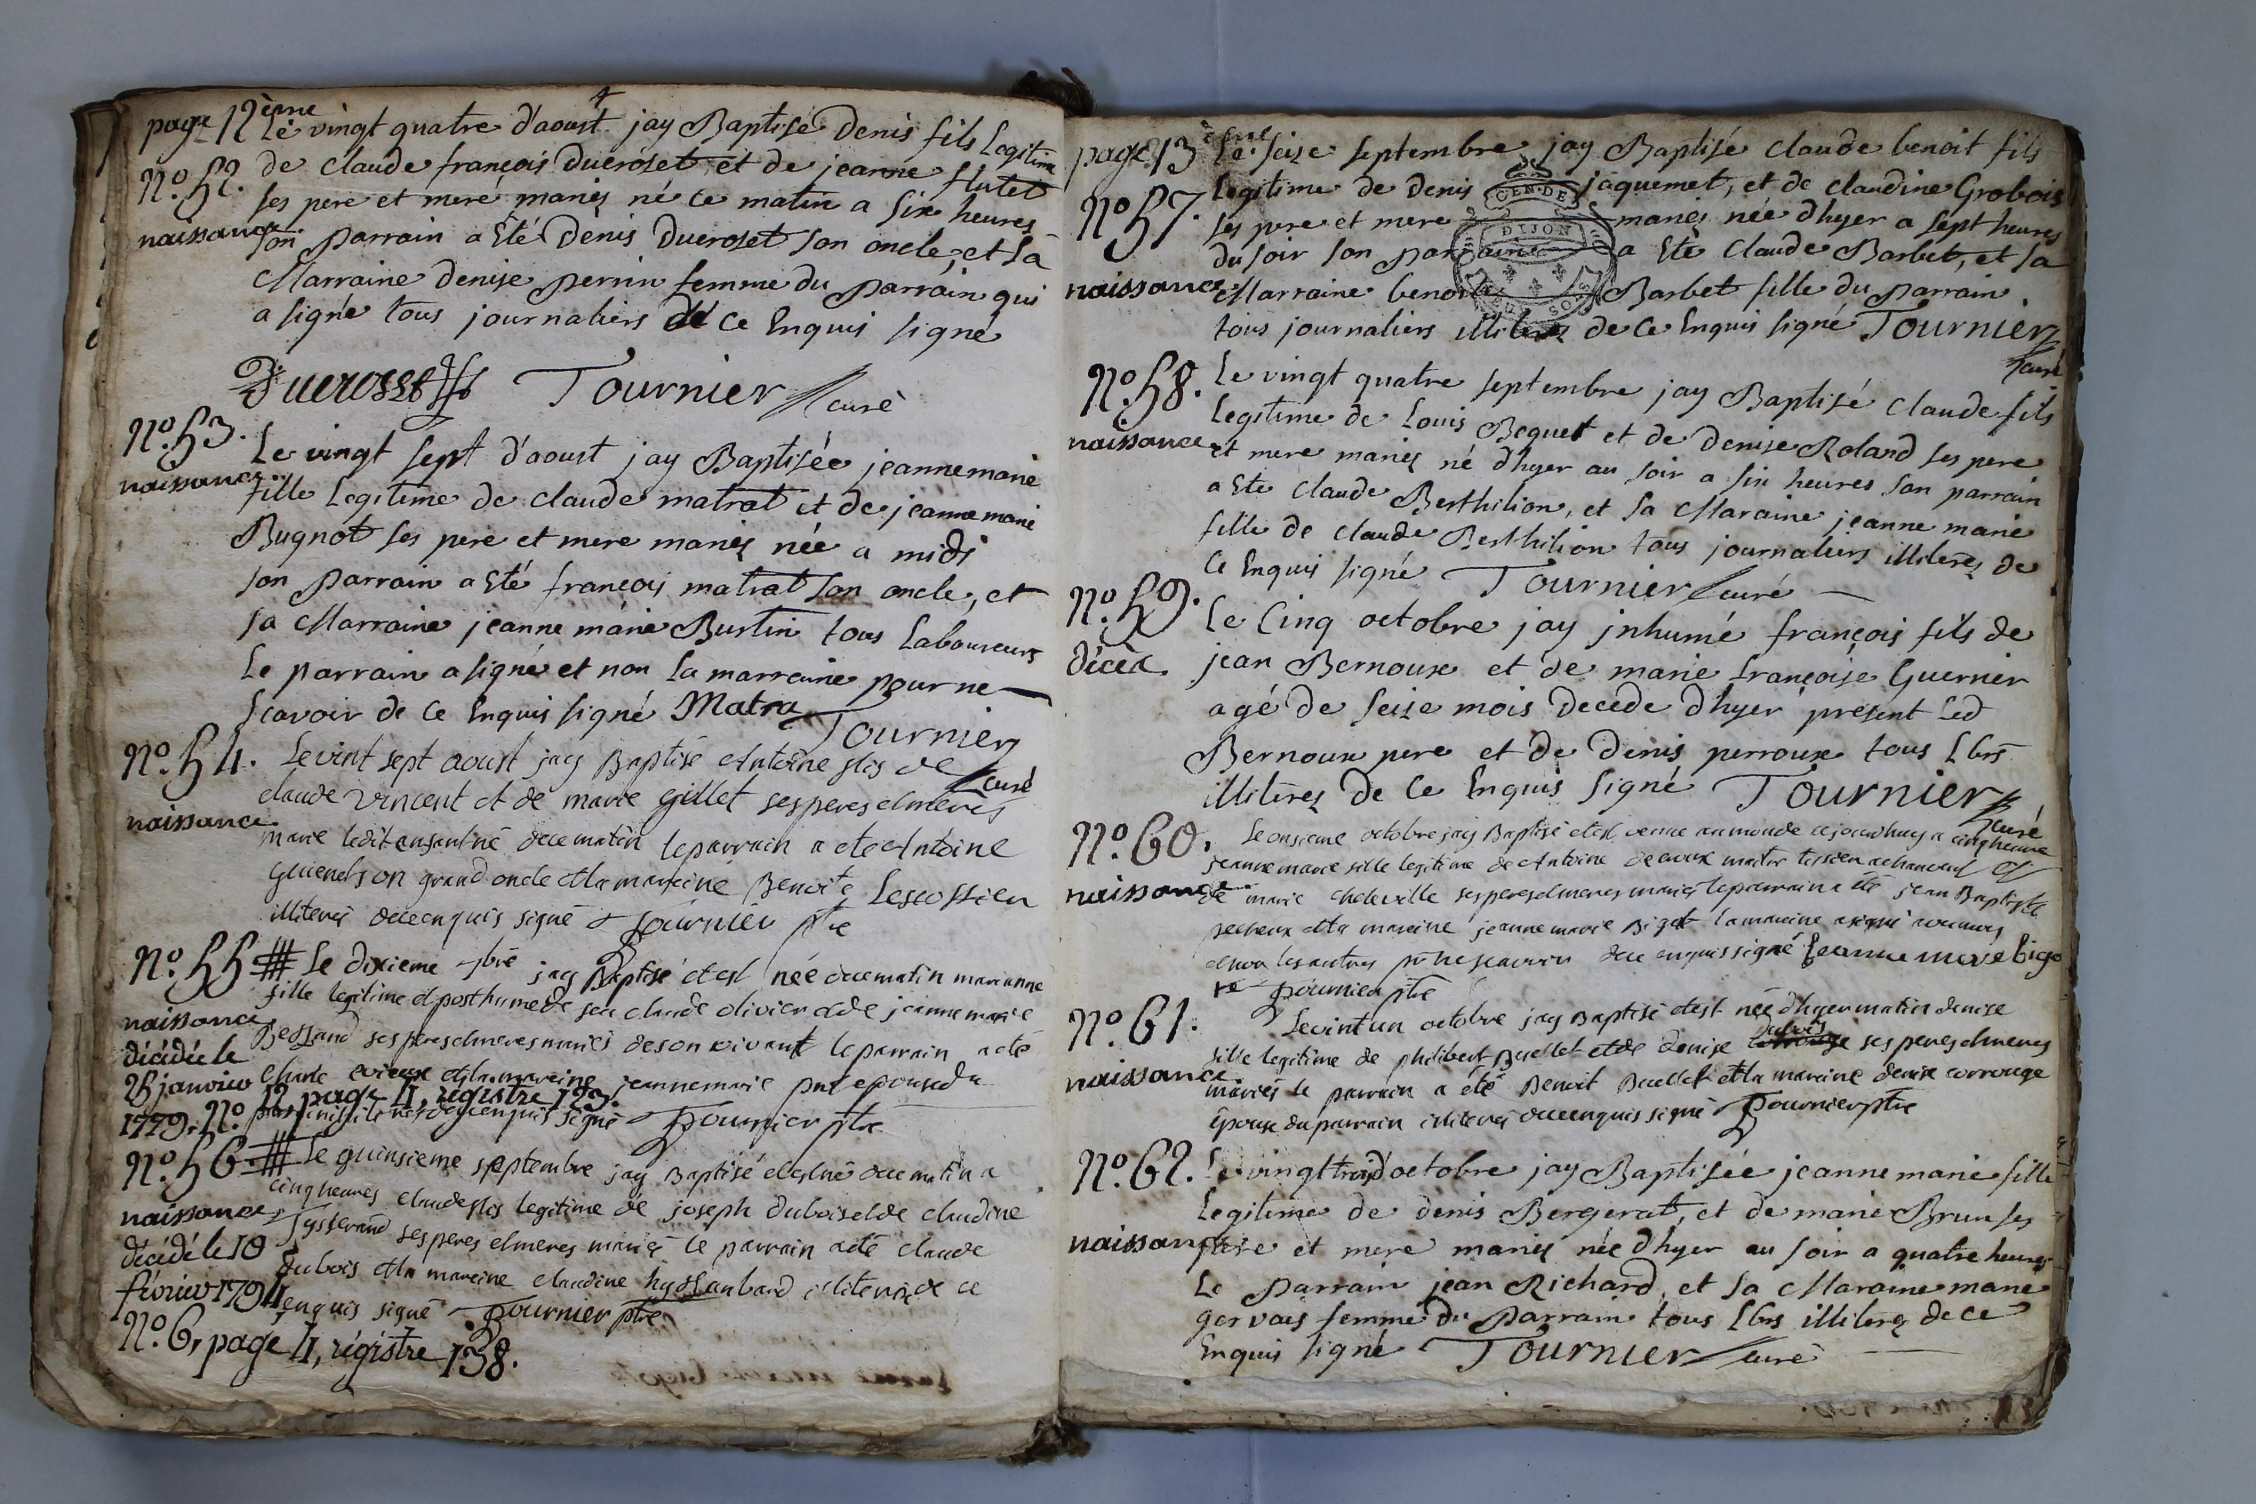 page 12ème
Le vingt quatre d'aoust jay Baptisé denis fils Legitime
N.º 52. de claude françois ducroset et de jeanne
naissance ses pere et mere mariés né ce matin a six heures
son parrain a Eté denis ducroset son oncle, et sa
Marraine denise perrin femme du parrain qui
a signé tous journaliers de ce Enquis signé
Ducrosset Tournier curé
N.º 53.
naissance
Le vingt sept d'aoust jay Baptisée jeanne marie
fille Legitime de claude matrat et de jeanne marie
Bugnot ses pere et mere mariés née a midi
son parrain a Eté françois matrat son oncle, et
sa Marraine jeanne marie Burtin tous Laboureurs
Le parrain a signé et non la marraine pour ne
scavoir de ce Enquis signé Matra Tournier
curé
N.º 54.
naissance
Le vint sept aoust jay Baptisé Antoine fils de
claude vincent et de marie gillet ses peres et meres
marie ledit enfant né de ce matin le parrain a ete Antoine
son grand oncle et la mareine Benoite
illiterés de ce enquis signé Tournier ptre
N.º 55
naissance
décédée le
28 janvier
1779. N.º 12, page 4, régistre 123.
Le dixieme 7bre jay Baptisé et est née de ce matin marianne
fille legitime et posthume de feu claude olivier et de jeanne marie
ses peres et meres mariés de son vivant le parrain a eté
et la mareine jeanne marie epouse du
parrain illiterés de ce enquis signé Tournier ptre
N.º 56
naissance
décédé le 18
février 1794
N.º 6, page 4, régistre 138.
Le quinsieme septembre jay Baptisé et est né de ce matin a
cinq heures claude fils legitime de joseph dubois et de claudine
Tysserand ses peres et meres mariés le parrain a eté claude
dubois et la mareine claudine illiterés de ce
enquis signé Tournier ptre
page 13ème
N.º 57.
naissance
Le seize septembre jay Baptisé claude benoit fils
Legitime de denis jaquemet, et de claudine Grobois
ses pere et mere mariés née dhyer a sept heures
du soir son parrain a Eté claude Barbet, et sa
Marraine benoite Barbet fille du parrain
tous journaliers illiterés de ce Enquis signé Tournier
curé
GEN. DE
DIJON
N.º 58.
naissance
Le vingt quatre septembre jay Baptisé claude fils
Legitime de Louis Bequet et de denise Roland ses pere
et mere mariés né dhyer au soir a six heures son parrain
a Ete claude Berthilion, et sa Maraine jeanne marie
fille de claude Berthilion tous journaliers illiterés de
ce Enquis signé Tournier curé
N.º 59.
décès
Le cinq octobre jay jnhumé françois fils de
jean Bernoux et de marie françoise Guerrier
agé de seize mois decede dhyer present Led
Bernoux pere et de denis perroux tous Lbrs
illiterés de ce Enquis signé Tournier
curé
N.º 60.
naissance
Le onsieme octobre jay Baptisé et est venue au monde ajourdhuy a cinq heure
jeanne marie fille legitime de Antoine maitre
de marie ses peres et meres mariés le parrain a été jean Baptiste
pecheux et la mareine jeanne marie Bigot la mareine a signé
et non les autres pr ne scavoir de ce enquis signé jeanne marie bigo
Tournier ptre
N.º 61.
naissance
Le vint un octobre jay Baptisé et est née dhyer matin denise
fille legitime de philibert Buellet et de denise dubois ses peres et meres
mariés le parrain a été Benoit Buellet et la mareine denise corrouge
épouse du parrain illiterés de ce enquis signé Tournier ptre
N.º 62.
naissance
Le vingt trois d'octobre jay Baptisée jeanne marie fille
Legitime de denis Bergerat, et de marie Brun ses
pere et mere mariés née dhyer au soir a quatre heures
Le parrain jean Richard, et sa Maraine marie
gervais femme du parrain tous Lbrs illiterés de ce
Enquis signé Tournier curé